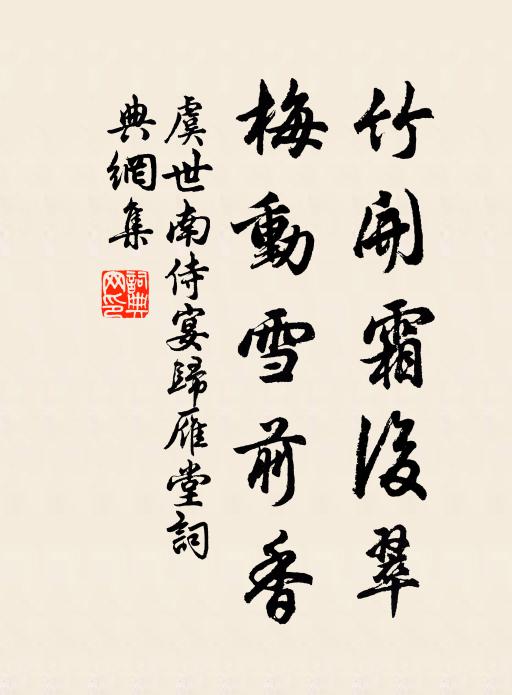 竹開霜後翠
梅動雪前香
虞世南侍宴歸雁堂詞
典網集
詞典
网印